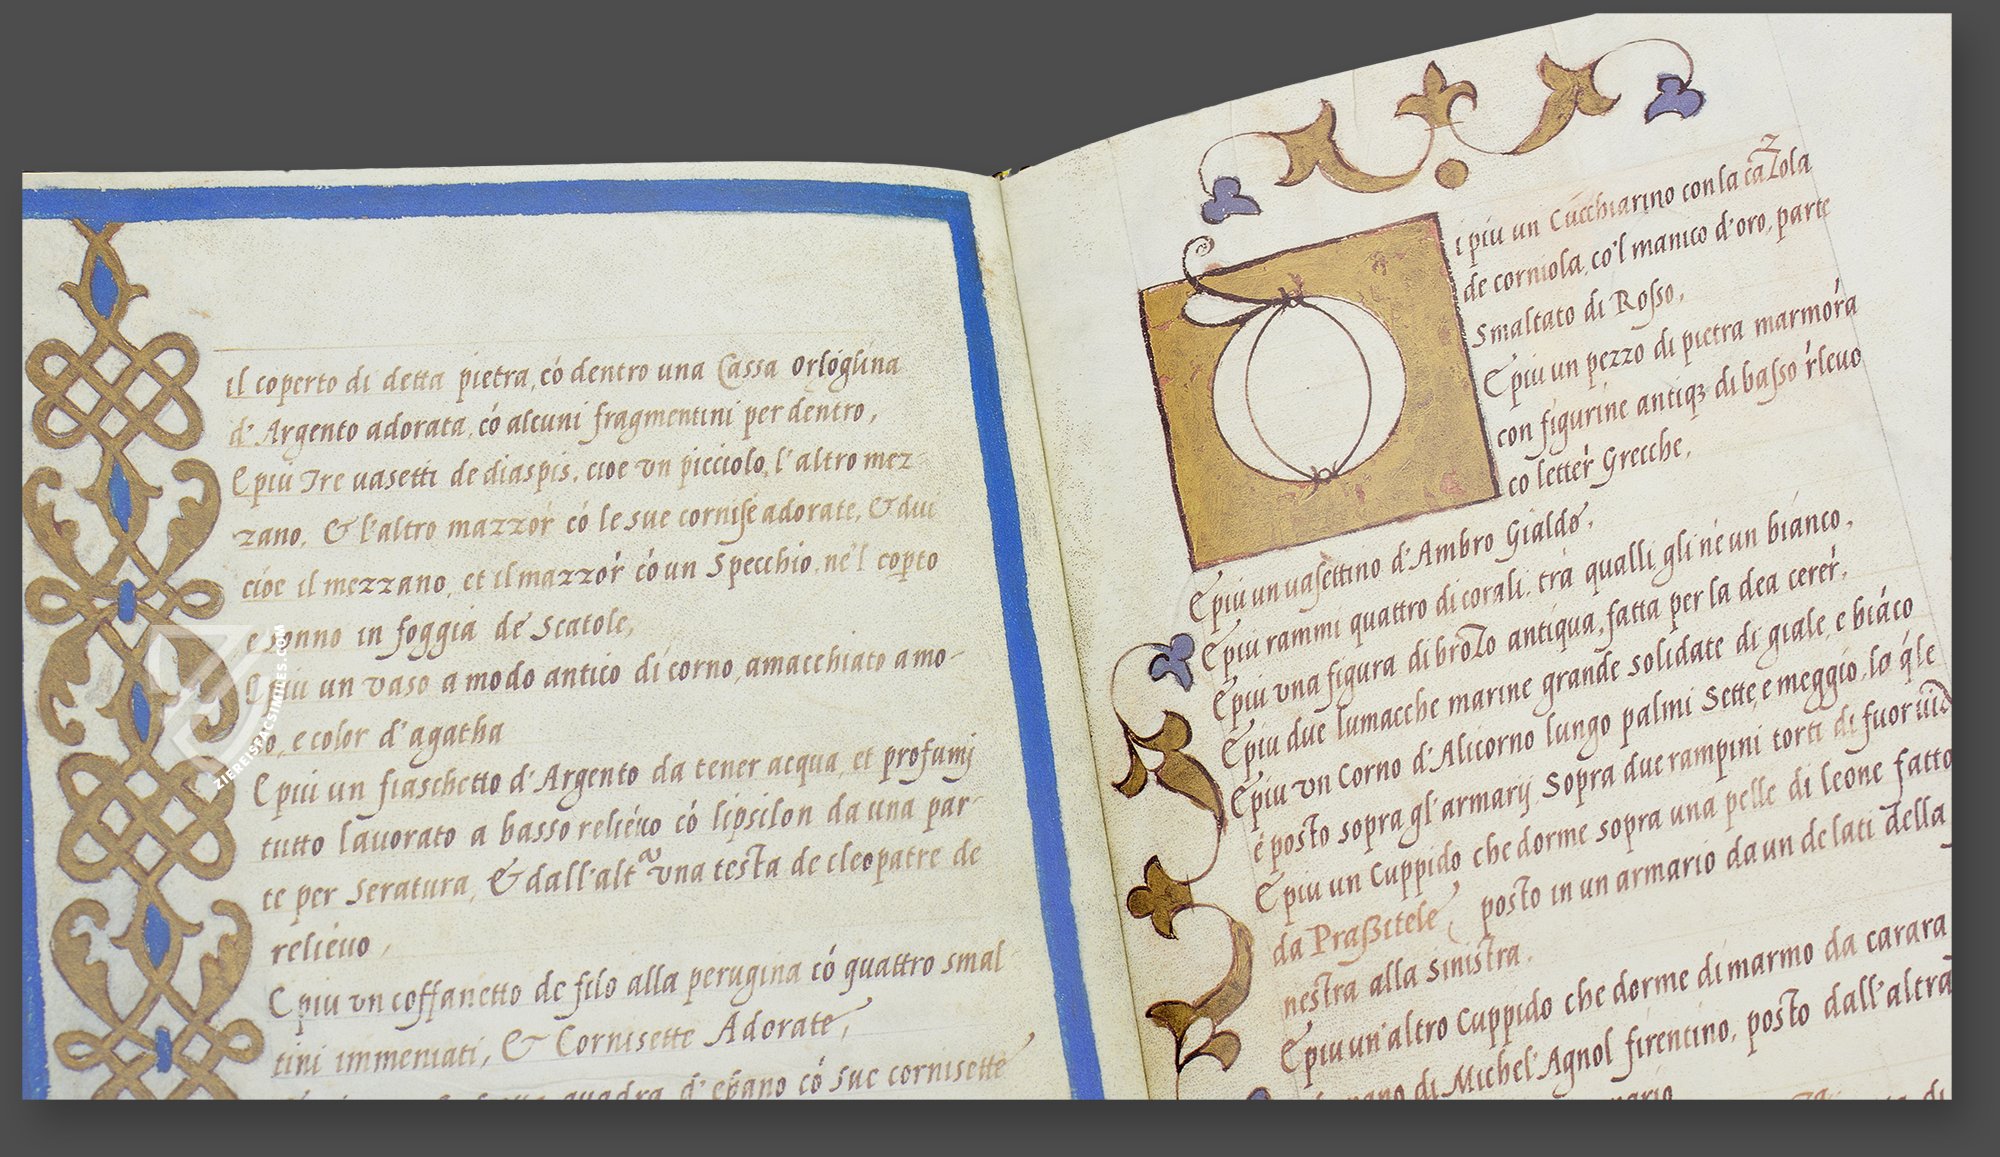 il coperto di detta pietra, có dentro una Cassa orloglina
d'Argento adorata, có alcuni fragmentini per dentro,
E piu Tre uasetti de diaspis, cioe vn picciolo, l'altro mez-
zano, & l'altro mazzór có le sue cornise adorate, & dui
cioe il mezzano, et il mazzór có un Specchio, ne'l copto
e sonno in foggia de Scatole,
E piu un vaso a modo antico di corno, amacchiato a mo-
ro, e color d'agatha
E piu un fiaschetto d'Argento da tener acqua, et profumj
tutto lauorato a basso relieuo có lipsilon da una par-
te per Seratura, & dall'alta vna testa de cleopatre de
relieuo,
E piu vn coffanetto de filo alla perugina có quattro smal
tini immeniati, & Cornisette Adorate,
quadra d'ebano có sue cornisette
D
i piu un Cucchiarino con la cazola
de corniola, co'l manico d'oro, parte
Smaltato di Rosso,
E piu un pezzo di pietra marmóra
con figurine antiqz di basso rleuo
co letter Grecche,
E piu un uasettino d'Ambro Gialdo,
E piu rammi quattro di corali, tra qualli gli né un bianco,
E piu vna figura di brozo antiqua, fatta per la dea cerer,
E piu due lumacche marine grande solidate di giale, e biáco
E piu vn Corno d'Alicorno lungo palmi Sette, e meggio, lo qle
é posto sopra gl'armarij Sopra due rampini torti di fuor uia
E piu un Cuppido che dorme sopra una pelle di leone fatto
da Praßitele, posto in un armario da un de lati della
nestra alla sinistra,
E piu un'altro Cuppido che dorme di marmo da carara
mano di Michel'Agnol firentino, posto dall'altra
ZIEREISFACSIMILES.COM